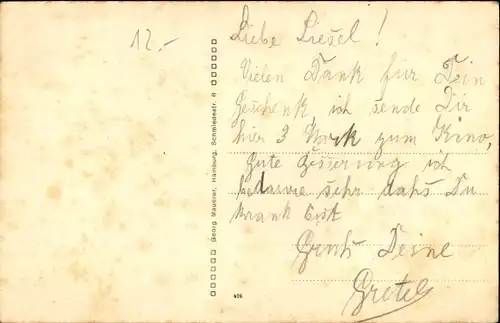 12.-
Liebe Liesel!
Vielen Dank für Dein
Geschenk ich sende Dir
hier 3 Mark zum Kino,
Gute Besserung ich
bedauere sehr dahs Du
krank bist
Gruh Deine
Gretel
Georg Mauerer, Hamburg, Schmiedestr. 8